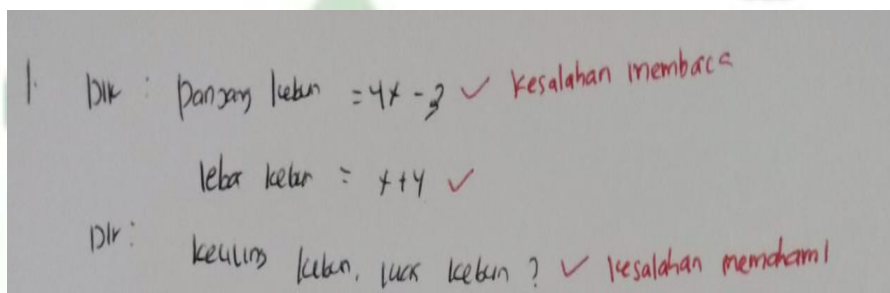 1. Dik : Panjang kebun = 4x - 3 ✓ kesalahan membaca
lebar kebun = x+4 ✓
Dit : keliling kebun, luas kebun ? ✓ kesalahan memahami